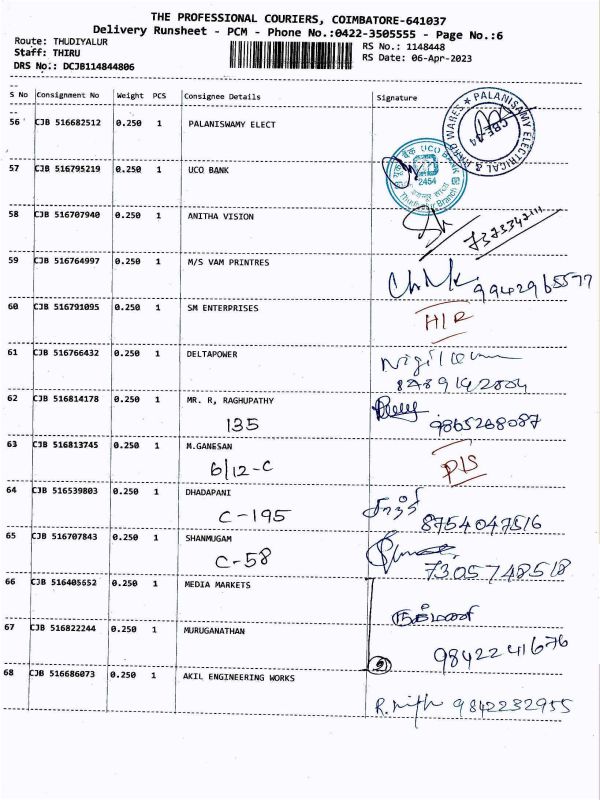 THE PROFESSIONAL COURIERS, COIMBATORE-641037
Delivery Runsheet - PCM - Phone No.:0422-3505555 - Page No.:6
Route: THUDIYALUR
Staff: THIRU
DRS No.: DCJB114844806
RS No.: 1148448
RS Date: 06-Apr-2023
S No Consignment No Weight PCS Consignee Details Signature
56 CJB 516682512 0.250 1 PALANISWAMY ELECT
PALANISAMY ELECTRICAL & HARD WARES ★
CBE-34
57 CJB 516795219 0.250 1 UCO BANK
UCO BANK
2454
58 CJB 516707940 0.250 1 ANITHA VISION
7373347111
59 CJB 516764997 0.250 1 M/S VAM PRINTRES
9942965577
60 CJB 516791095 0.250 1 SM ENTERPRISES
H/R
61 CJB 516766432 0.250 1 DELTAPOWER
62 CJB 516814178 0.250 1 MR. R, RAGHUPATHY
135 9865268087
63 CJB 516813745 0.250 1 M.GANESAN
6/12-C D/S
64 CJB 516539803 0.250 1 DHADAPANI
C-195 8754047516
65 CJB 516707843 0.250 1 SHANMUGAM
C-58 7305748518
66 CJB 516405652 0.250 1 MEDIA MARKETS
67 CJB 516822244 0.250 1 MURUGANATHAN
9842241676
68 CJB 516686073 0.250 1 AKIL ENGINEERING WORKS
9842232955